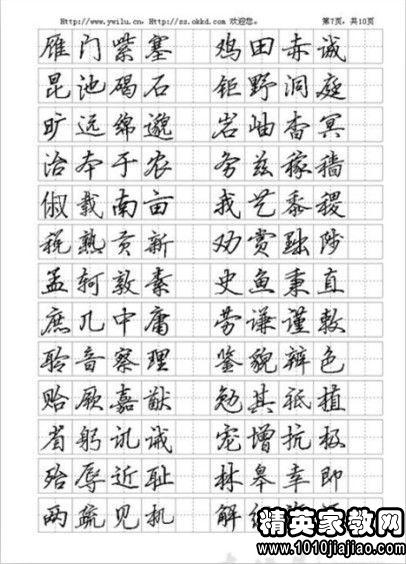 Http://www.ywilu.cn, Http://ss.okkd.com 欢迎您。 第7页，共10页
雁门紫塞 鸡田赤诚
昆池碣石 钜野洞庭
旷远绵邈 岩岫杳冥
治本于农 务兹稼穑
俶载南亩 我艺黍稷
税熟贡新 劝赏黜陟
孟轲敦素 史鱼秉直
庶几中庸 劳谦谨敕
聆音察理 鉴貌辨色
贻厥嘉猷 勉其祗植
省躬讥诫 宠增抗极
殆辱近耻 林皋幸即
两疏见机 解
精英家教网
www.1010jiajiao.com